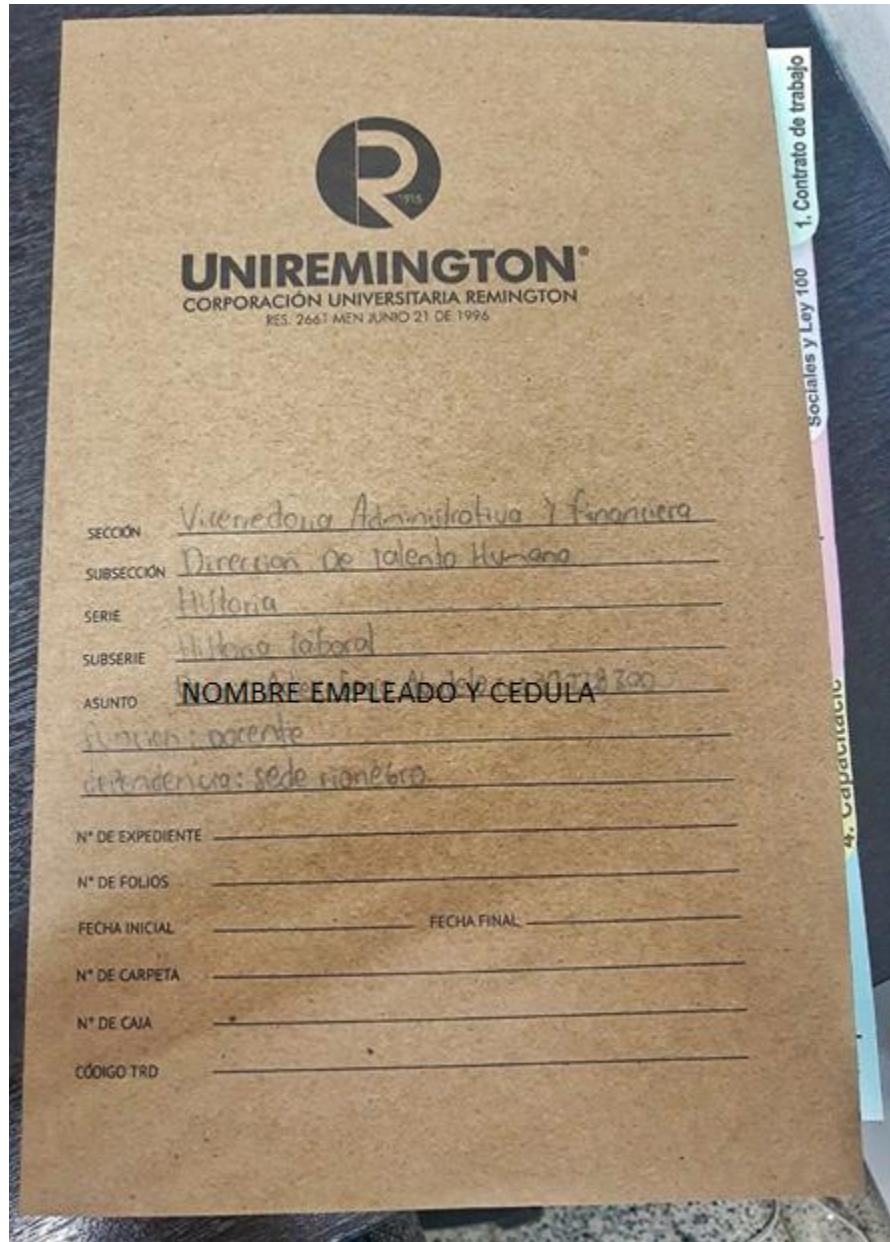 1915
UNIREMINGTON®
CORPORACIÓN UNIVERSITARIA REMINGTON
RES. 2661 MEN JUNIO 21 DE 1996
SECCIÓN Vicerrectoria Administrativa Y financiera
SUBSECCIÓN Direccion De talento Humano
SERIE Historia
SUBSERIE Historia laboral
ASUNTO NOMBRE EMPLEADO Y CEDULA
funcion: docente
dependencia: sede rionegro
N° DE EXPEDIENTE
N° DE FOLIOS
FECHA INICIAL FECHA FINAL
N° DE CARPETA
N° DE CAJA
CÓDIGO TRD
1. Contrato de trabajo
Sociales y Ley 100
4. Capacitació